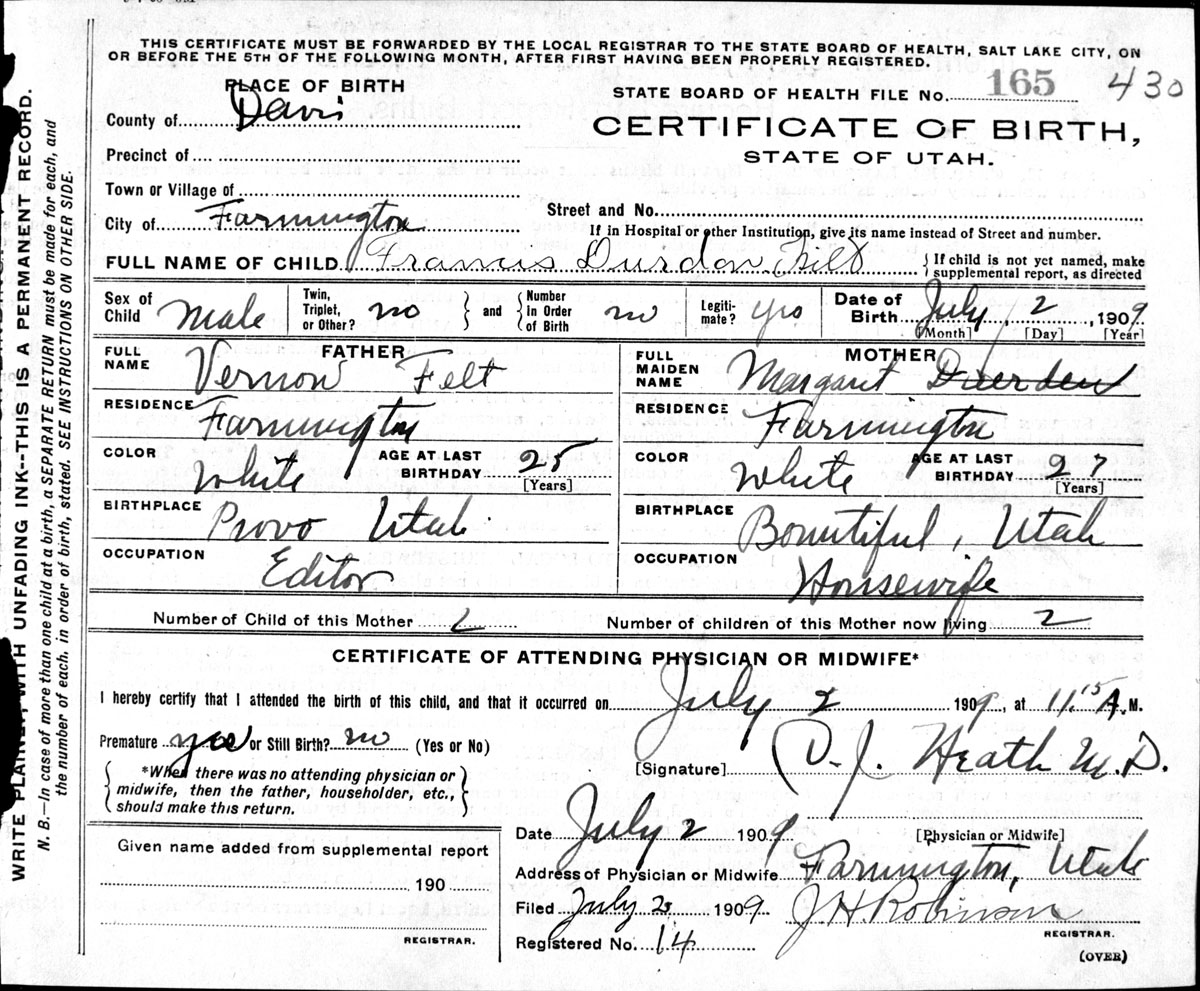 THIS CERTIFICATE MUST BE FORWARDED BY THE LOCAL REGISTRAR TO THE STATE BOARD OF HEALTH, SALT LAKE CITY, ON
OR BEFORE THE 5TH OF THE FOLLOWING MONTH, AFTER FIRST HAVING BEEN PROPERLY REGISTERED.
PLACE OF BIRTH
STATE BOARD OF HEALTH FILE No. 165 430
County of Davis
CERTIFICATE OF BIRTH,
STATE OF UTAH.
Precinct of
Town or Village of
Street and No.
City of Farmington
If in Hospital or other Institution, give its name instead of Street and number.
FULL NAME OF CHILD Francis Durdon Felt
{ If child is not yet named, make
supplemental report, as directed
Sex of Child Male
Twin, Triplet, or Other? no } and { Number In Order of Birth no
Legiti-mate? yes
Date of Birth July 2, 1909
[Month] [Day] [Year]
FATHER
FULL NAME Vernon Felt
RESIDENCE Farmington
COLOR White AGE AT LAST BIRTHDAY 25
[Years]
BIRTHPLACE Provo Utah
OCCUPATION Editor
MOTHER
FULL MAIDEN NAME Margaret Duerden
RESIDENCE Farmington
COLOR White AGE AT LAST BIRTHDAY 27
[Years]
BIRTHPLACE Bountiful, Utah
OCCUPATION Housewife
Number of Child of this Mother 2 Number of children of this Mother now living 2
CERTIFICATE OF ATTENDING PHYSICIAN OR MIDWIFE*
I hereby certify that I attended the birth of this child, and that it occurred on July 2 1909, at 11.15 A.M.
Premature yes or Still Birth? no (Yes or No)
{ *When there was no attending physician or
midwife, then the father, householder, etc.,
should make this return. }
[Signature] J. Heath M.D.
Date July 2 1909 [Physician or Midwife]
Address of Physician or Midwife Farmington, Utah
Filed July 1909 J H Robinson
REGISTRAR.
Registered No. 14
(OVER)
Given name added from supplemental report
190
REGISTRAR.
WRITE PLAINLY, WITH UNFADING INK--THIS IS A PERMANENT RECORD.
N. B.—In case of more than one child at a birth, a SEPARATE RETURN must be made for each, and
the number of each. in order of birth, stated. SEE INSTRUCTIONS ON OTHER SIDE.